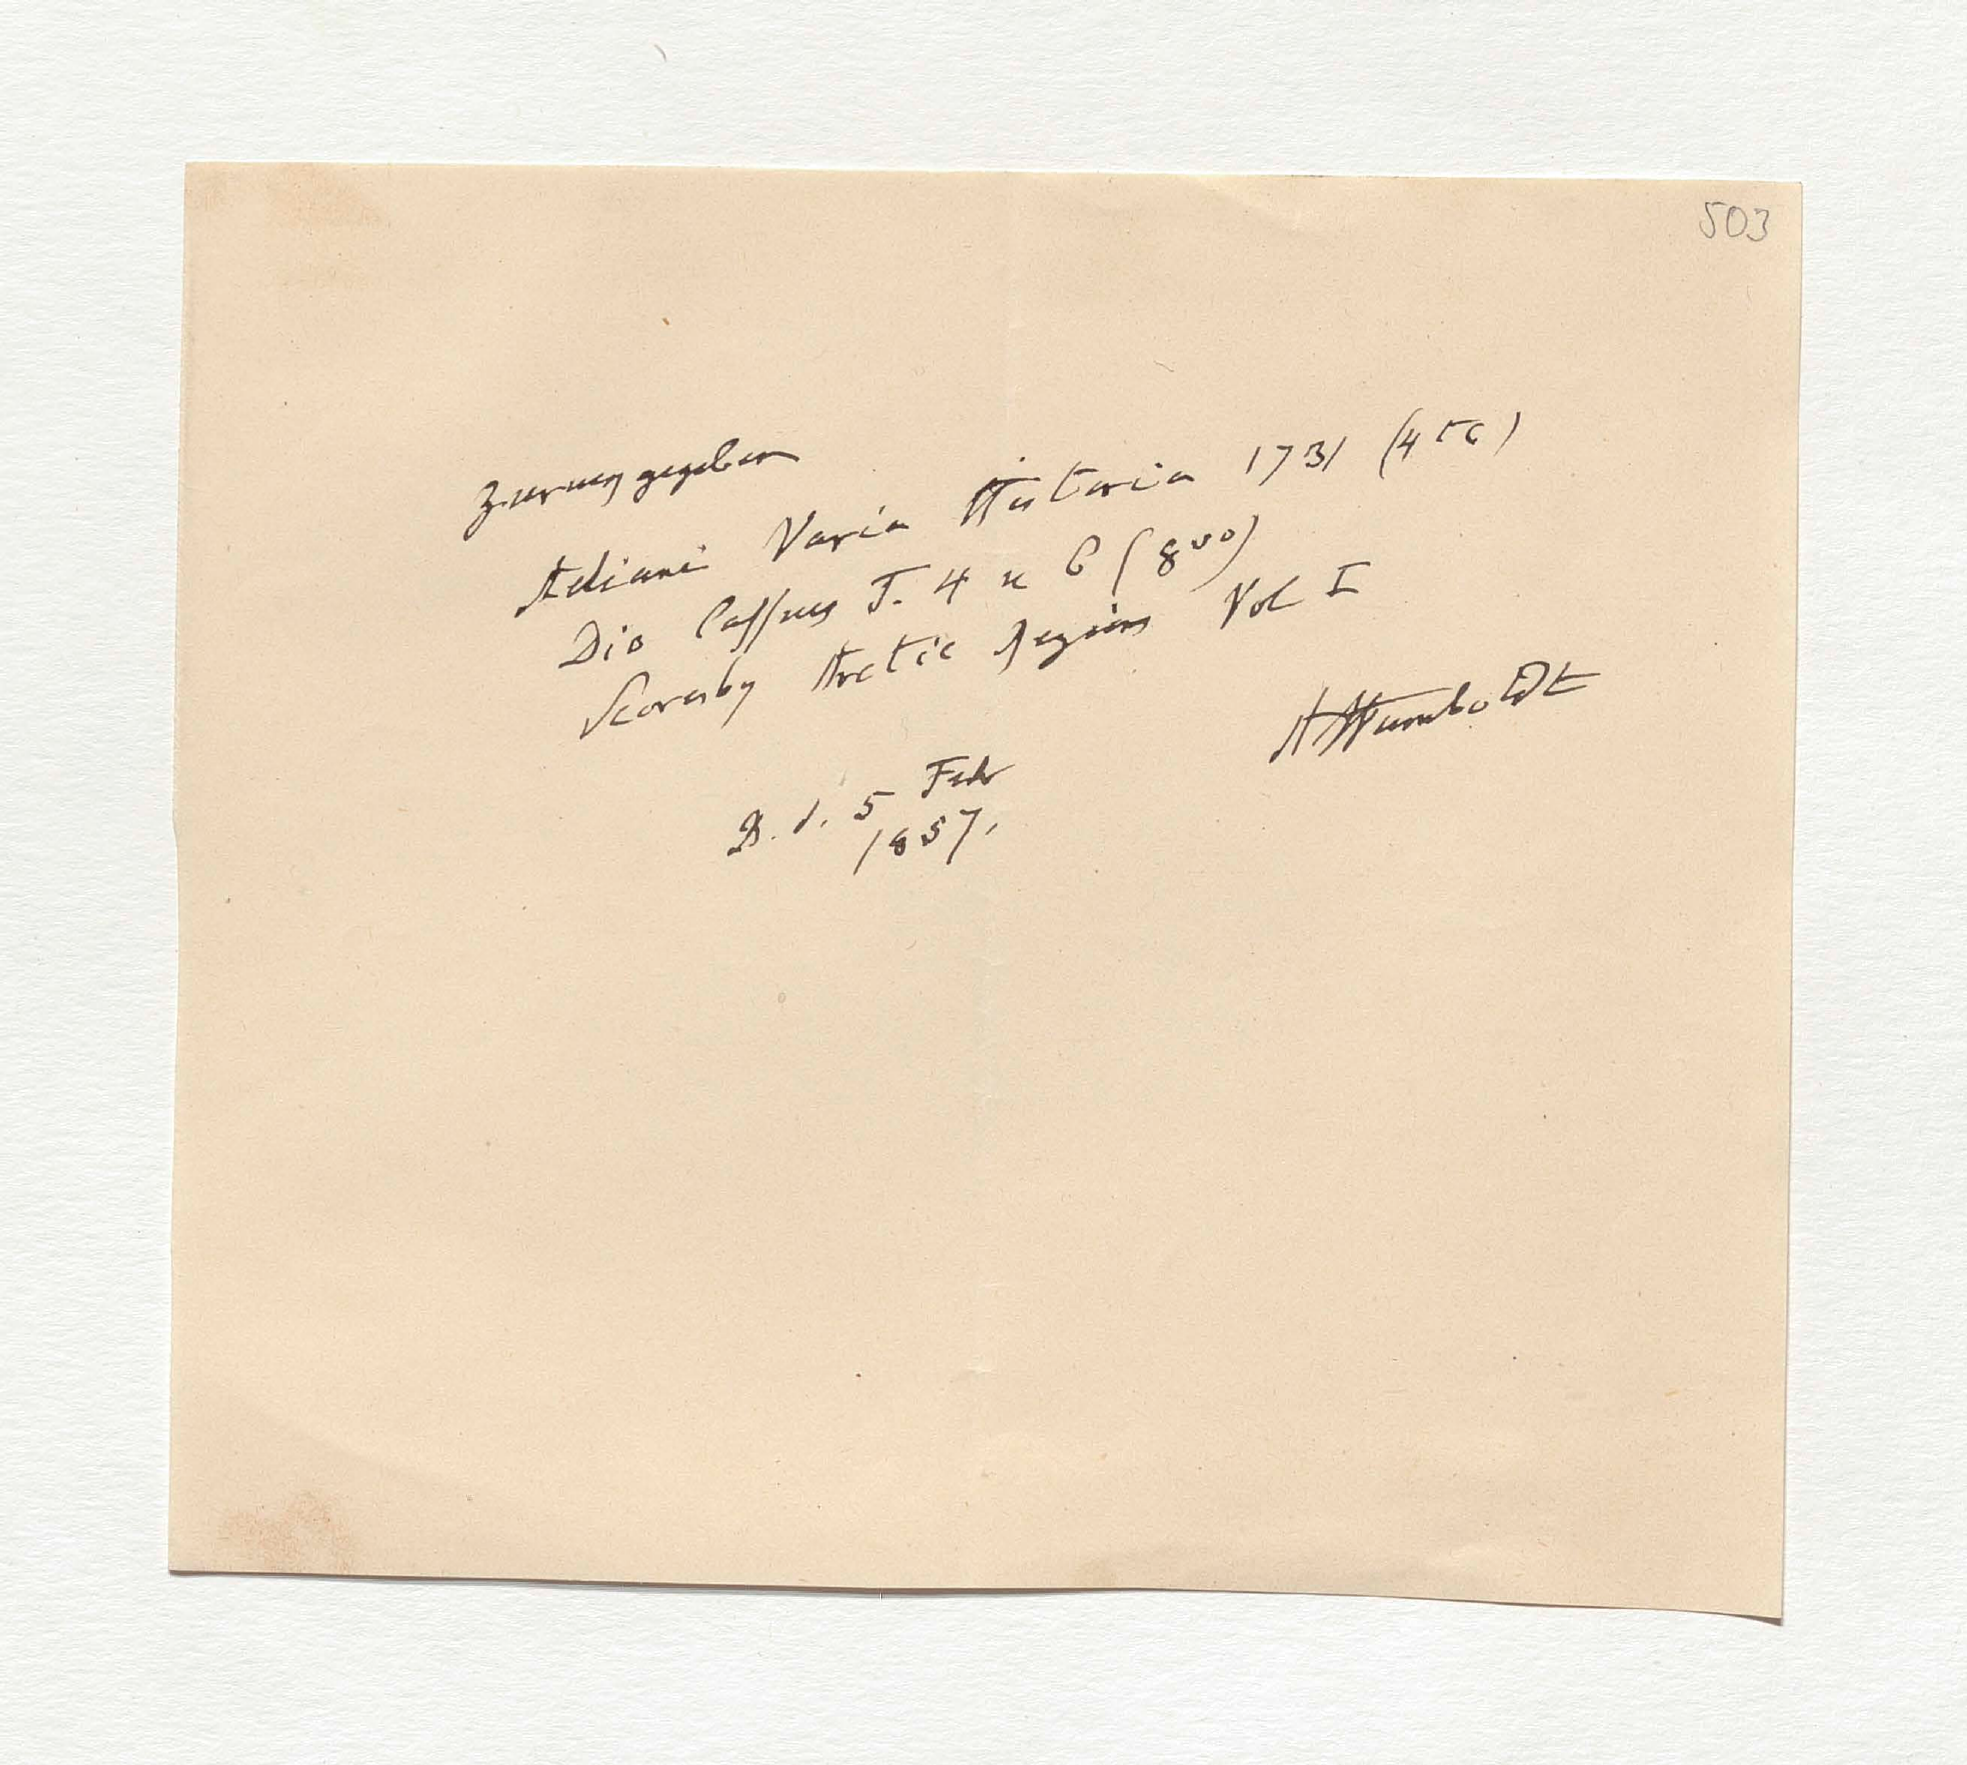 503
zurückgegeben
Aeliani Varia Historia 1731 (4to)
Dio Cassius T. 4 u 6 (8vo)
Scoresby Arctic Regions Vol I
AHumboldt
B. d. 5 Febr
1857.